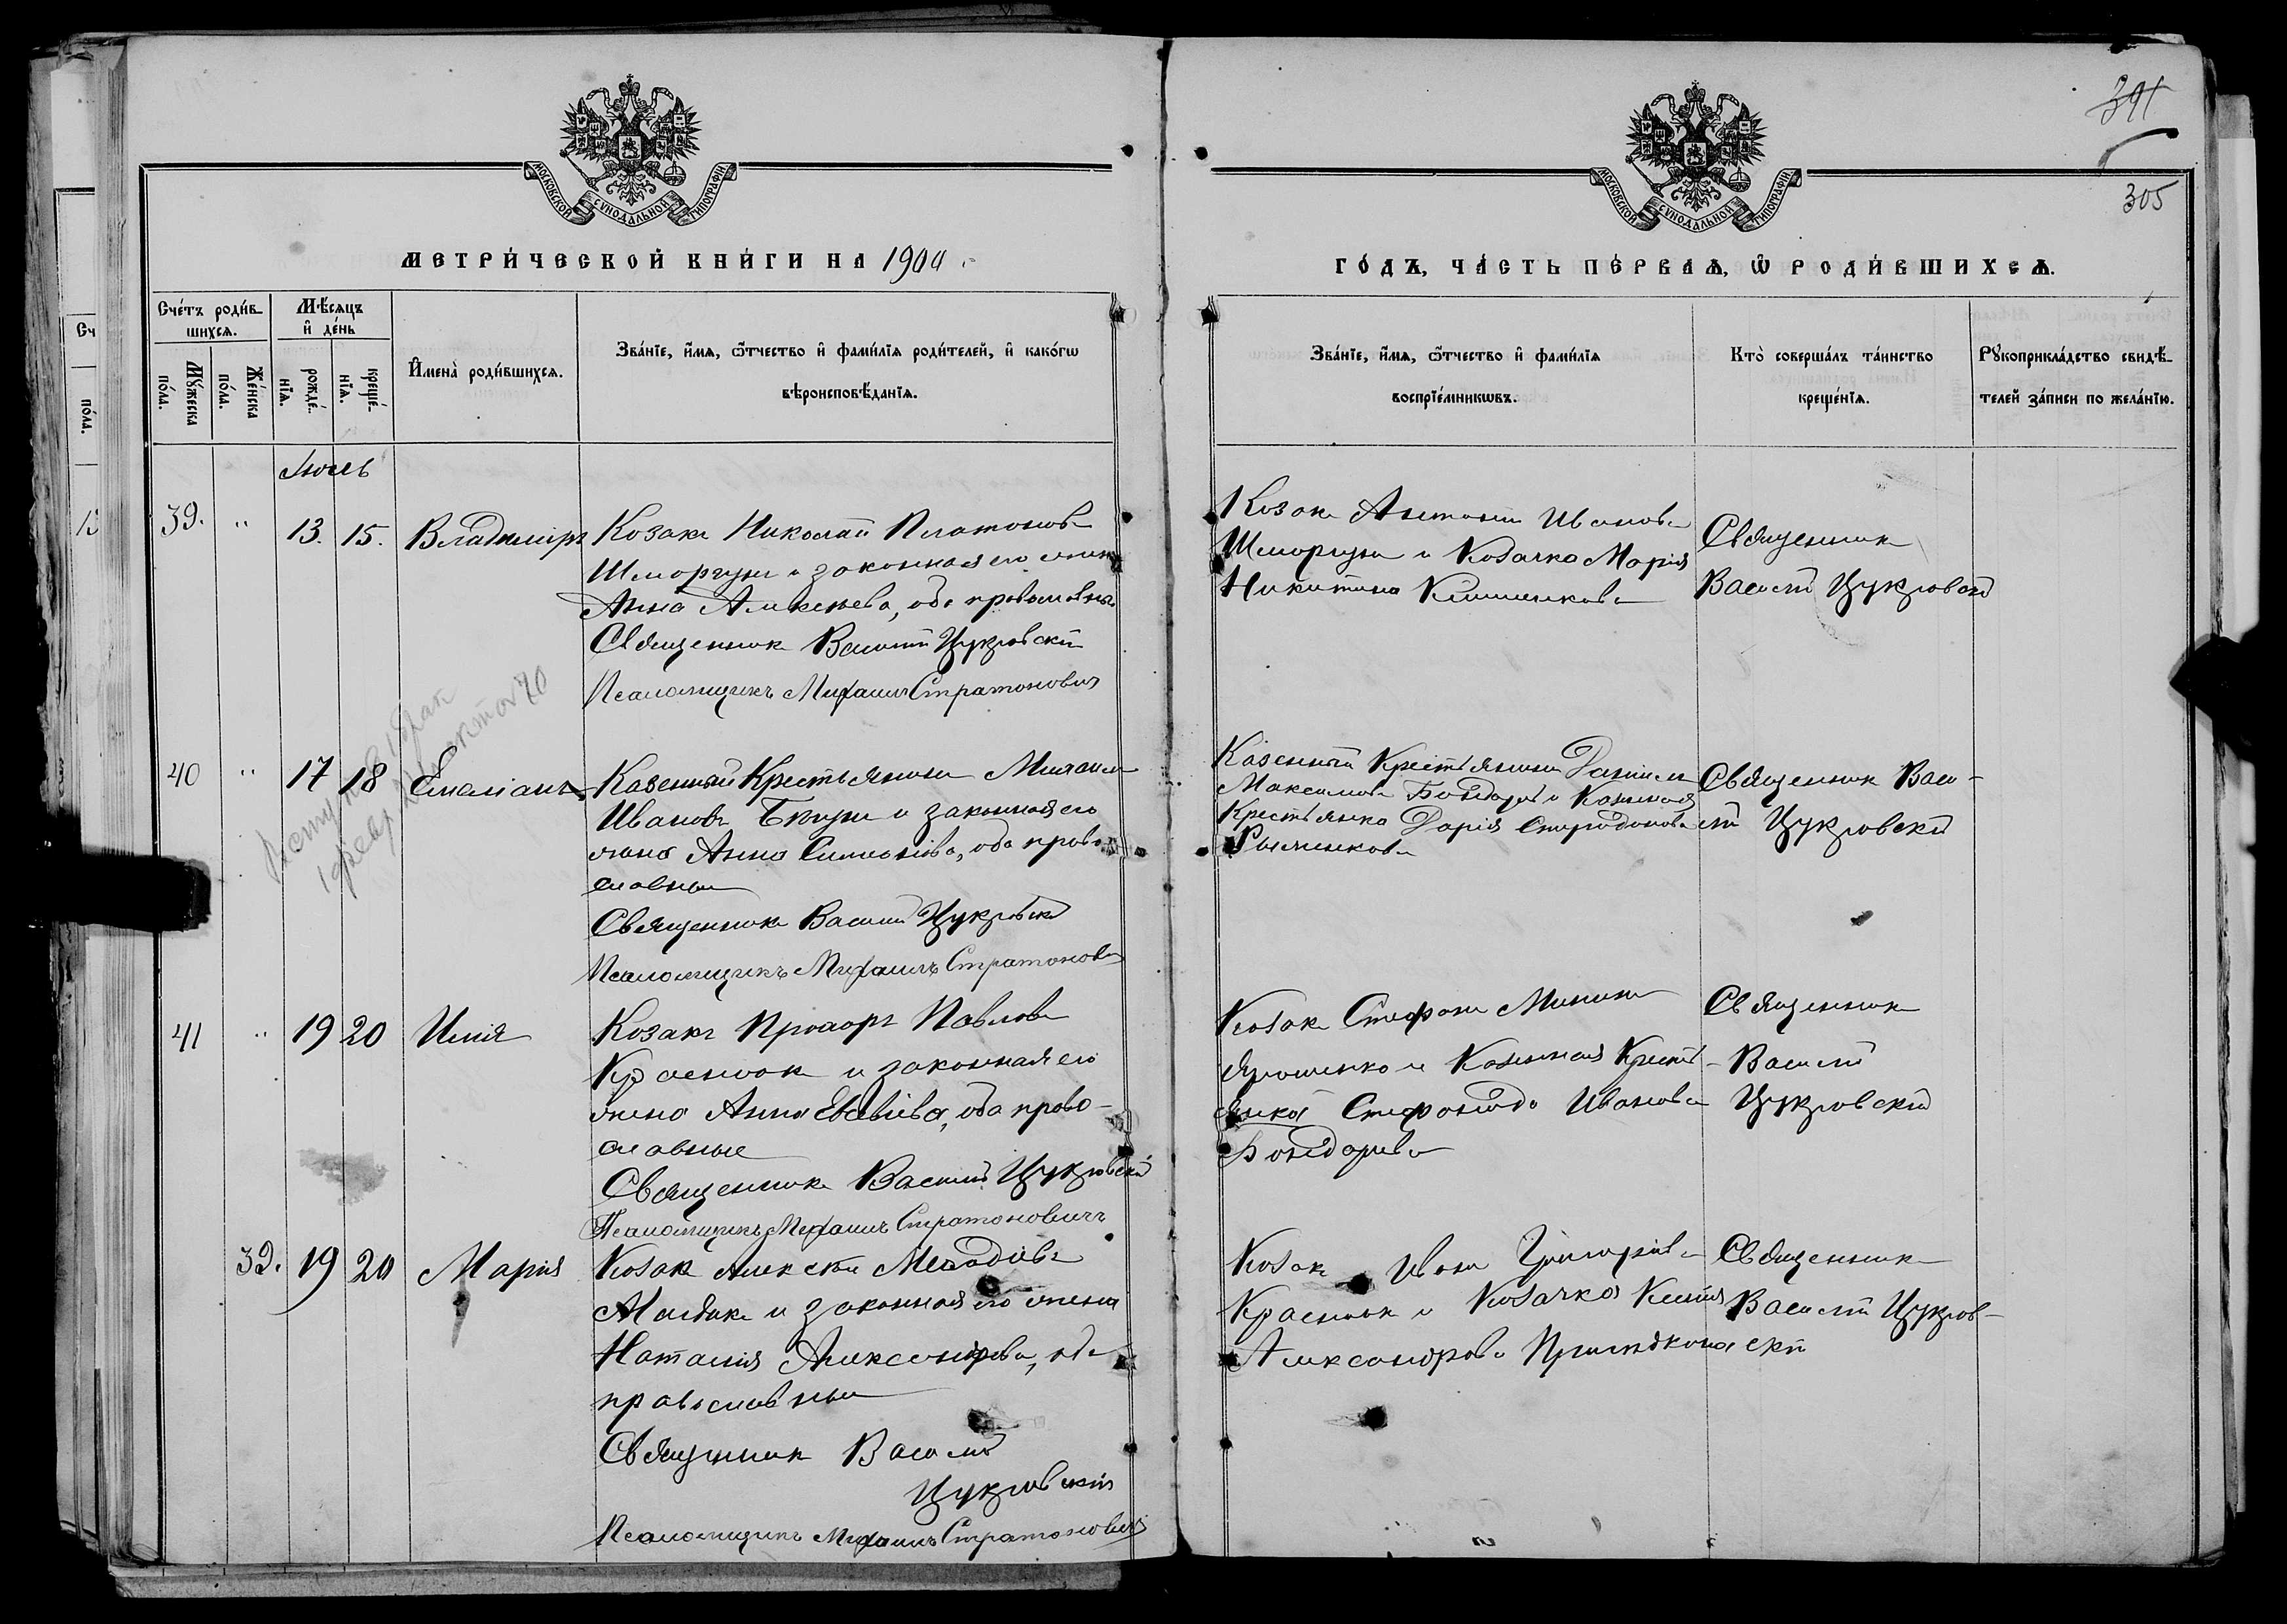 391
305
МОСКОВСКОЙ СѴНОДАЛЬНОЙ ТИПОГРАФІИ
МОСКОВСКОЙ СѴНОДАЛЬНОЙ ТИПОГРАФІИ
МЕТРИ́ЧЕСКОЙ КНИ́ГИ НА 1900 г
ГО́ДЪ, ЧА́СТЬ ПЕ́РВАѦ, Ѿ РОДИ́ВШИХСѦ.
Сче́тъ роди́в-
шихсѧ.
Мꙋ́жеска
по́ла.
Же́нска
по́ла.
Мѣ́сѧцъ
и҆ де́нь
рожде́-
нїѧ.
креще́-
нїѧ.
И҆мена̀ роди́вшихсѧ.
Зва́нїе, и҆́мѧ, ѻ҆́тчество и҆ фамі́лїѧ роди́телей, и҆ како́гѡ
вѣроисповѣ́данїѧ.
Зва́нїе, и҆́мѧ, ѻ҆́тчество и҆ фамі́лїѧ
воспрїе́мникѡвъ.
Кто̀ соверша́лъ та́инство
креще́нїѧ.
Рꙋкоприкла́дство свидѣ́-
телей за́писи по жела́нїю.
Іюль
39. " 13. 15. Владиміръ
Козакъ Николай Платоновъ
Шморгунъ и законная его жена
Анна Алексѣева, оба православные
Священникъ Василій Цукровскій
Псаломщикъ Михаилъ Стратоновичъ
Козакъ Антоній Ивановъ
Шморгунъ и Козачка Марія
Никитина
Священникъ
Василій Цукровскій
40 " 17 18 Емеліанъ
Казенный Крестьянинъ
Ивановъ и законная его
жена Анна оба право-
славные
Священникъ Василій Цукровскій
Псаломщикъ Михаилъ Стратоновичъ
Казенный Крестьянинъ Даніилъ
Максимовъ Бондарь и Казенная
Крестьянка Дарія Спиридонова
Священникъ Васи-
лій Цукровскій
41 " 19 20 Илія
Козакъ Прохоръ Павловъ
Краснюкъ и законная его
жена Анна оба право-
славные
Священникъ Василій Цукровскій
Псаломщикъ Михаилъ Стратоновичъ
Козакъ Стефанъ
Ярошенко и Казенная Кресть-
янка Стефанида Иванова
Бондарева
Священникъ
Василій
Цукровскій
32. 19 20 Марія
Козакъ Алексѣй
и законная его жена
Наталія Александрова, оба
православные
Священникъ Василій
Цукровскій
Псаломщикъ Михаилъ Стратоновичъ
Козакъ Иванъ Григоріевъ
Краснюкъ и Козачка
Александрова
Священникъ
Василій Цукров-
скій